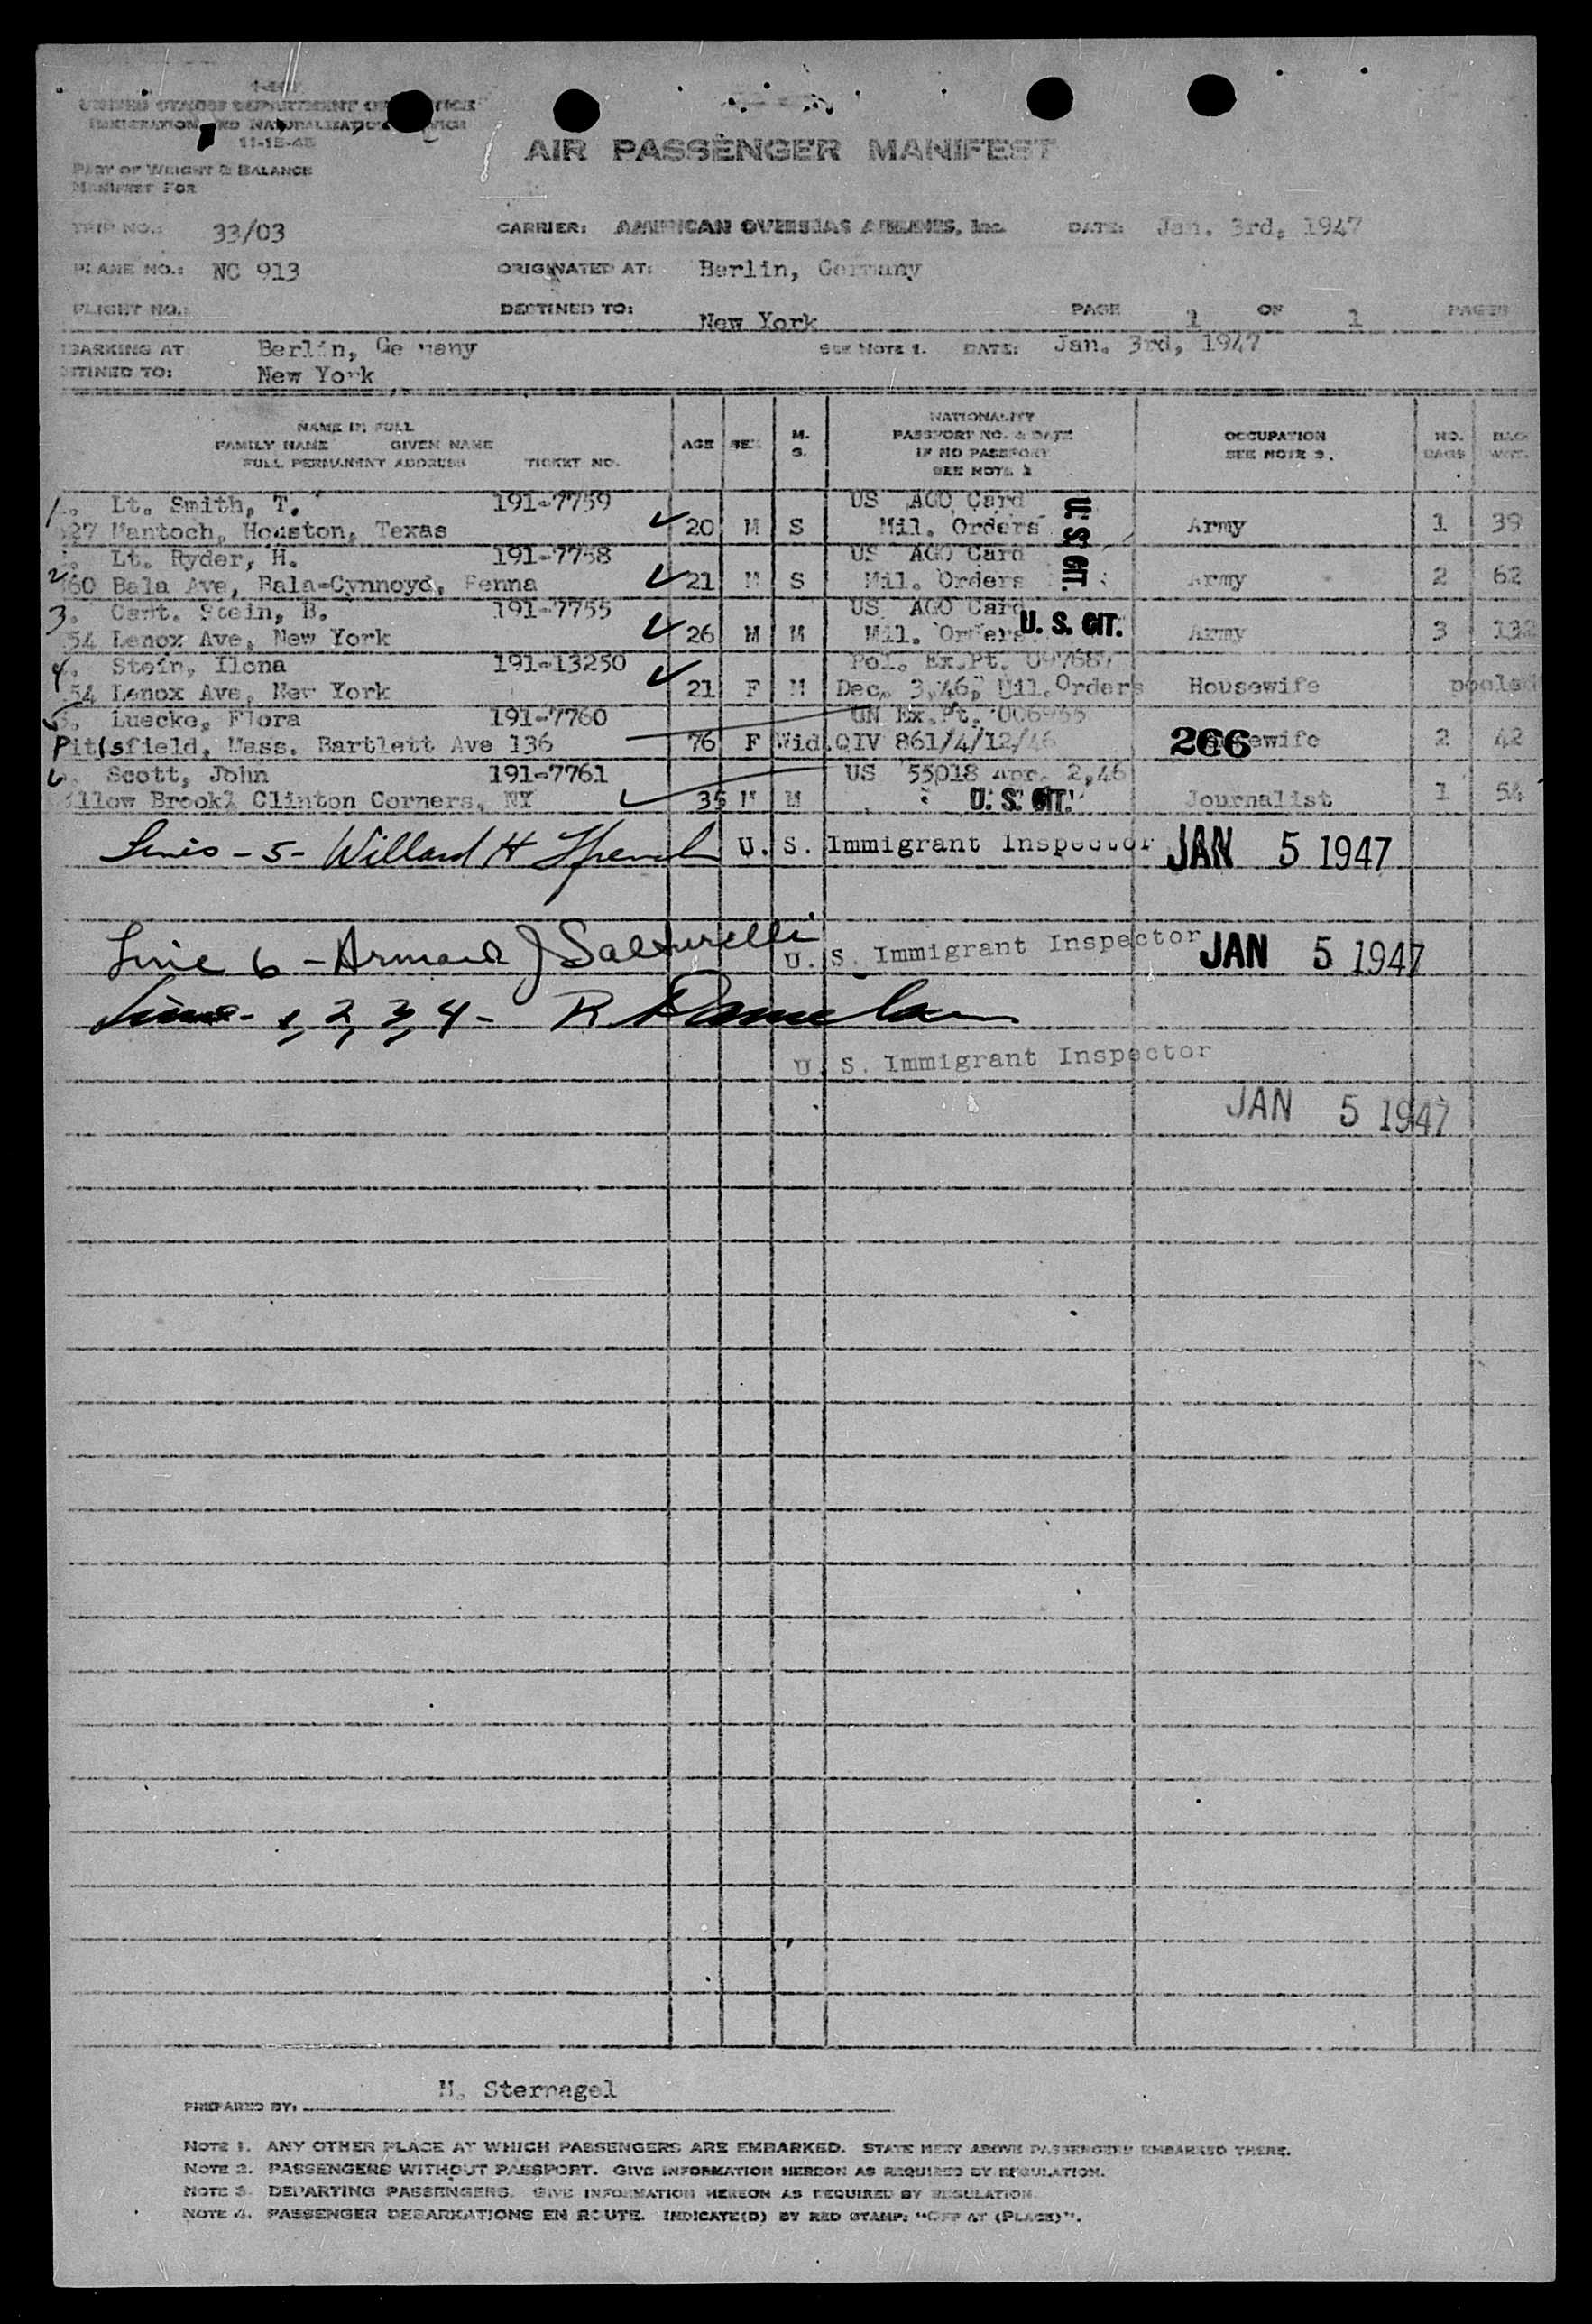 I-466
UNITED STATES DEPARTMENT OF JUSTICE
IMMIGRATION AND NATURALIZATION SERVICE
11-15-45
AIR PASSENGER MANIFEST
PART OF WEIGHT & BALANCE
MANIFEST FOR
TRIP NO.: 33/03 CARRIER: AMERICAN OVERSEAS AIRLINES, Inc. DATE: Jan. 3rd, 1947
PLANE NO.: NC 913 ORIGINATED AT: Berlin, Germany
FLIGHT NO.: DESTINED TO: New York PAGE 1 OF 1 PAGES
BARKING AT Berlin, Germany SEE NOTE 1. DATE: Jan. 3rd, 1947
STINED TO: New York
NAME IN FULL
FAMILY NAME GIVEN NAME
FULL PERMANENT ADDRESS TICKET NO. AGE SEX M. S. NATIONALITY PASSPORT NO. & DATE IF NO PASSPORT SEE NOTE 2 OCCUPATION SEE NOTE 3. NO. BAGS BAG WGT.
1. Lt. Smith, T. 191-7759 US AGO Card
27 Mantoch, Houston, Texas 20 M S Mil. Orders U.S CIT. Army 1 39
2. Lt. Ryder, H. 191-7758 US AGO Card
60 Bala Ave, Bala-Cynnoyd, Penna 21 M S Mil. Orders Army 2 62
3. Capt. Stein, B. 191-7755 US AGO Card
54 Lenox Ave, New York 26 M M Mil. Orders U. S. CIT. Army 3 132
4. Stein, Ilona 191-13250 Pol. Ex.Pt. 097687
54 Lenox Ave, New York 21 F M Dec. 3,46, Mil.Orders Housewife pooled
5. Luecke, Flora 191-7760 GN Ex.Pt. 006955
Pittsfield, Mass. Bartlett Ave 136 76 F Wid. QIV 861/4/12/46 266 ewife 2 42
6. Scott, John 191-7761 US 55018 Apr. 2,46
illow Brook, Clinton Corners, NY 35 M M U. S. CIT. Journalist 1 54
Lines - 5 - Willard H U. S. Immigrant Inspector JAN 5 1947
Line 6 - Armand J Salturelli U. S. Immigrant Inspector JAN 5 1947
Lines - 1, 2, 3, 4 - R
U. S. Immigrant Inspector
JAN 5 1947
H. Sternagel
PREPARED BY:
NOTE 1. ANY OTHER PLACE AT WHICH PASSENGERS ARE EMBARKED. STATE NEXT ABOVE PASSENGERS EMBARKED THERE.
NOTE 2. PASSENGERS WITHOUT PASSPORT. GIVE INFORMATION HEREON AS REQUIRED BY REGULATION.
NOTE 3. DEPARTING PASSENGERS. GIVE INFORMATION HEREON AS REQUIRED BY REGULATION.
NOTE 4. PASSENGER DEBARKATIONS EN ROUTE. INDICATE(D) BY RED STAMP: "OFF AT (PLACE)".